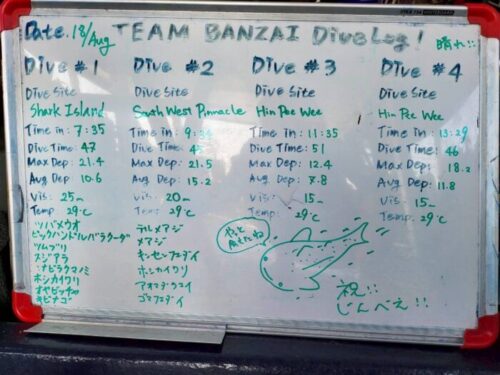 Date. 18/Aug TEAM BANZAI DiveLog! 晴れ!!
Dive #1
Dive Site
Shark Island
Time in: 7:35
Dive Time 47
Max Dep: 21.4
Avg Dep: 10.6
Vis: 25m
Temp: 29℃
ツバメウオ
ツムブリ
スジアラ
ホシカイワリ
オヤビッチャ
キビナゴ
Dive #2
Dive Site
South West Pinnacle
Time in: 9:
Dive Time
Max Dep: 21.5
Avg Dep: 15.2
Vis: 20m
Temp: 29℃
メアジ
ホシカイワリ
Dive #3
Dive Site
Hin Pee Wee
Time in: 11:35
Dive Time: 51
Max Dep: 12.4
Avg Dep: 7.8
Vis: 15m
Temp: 29℃
Dive #4
Dive Site
Hin Pee Wee
Time in: 13:29
Dive Time: 46
Max Dep: 18.2
Avg Dep: 11.8
Vis: 15m
Temp: 29℃
やっと
祝!!
じんべえ!!